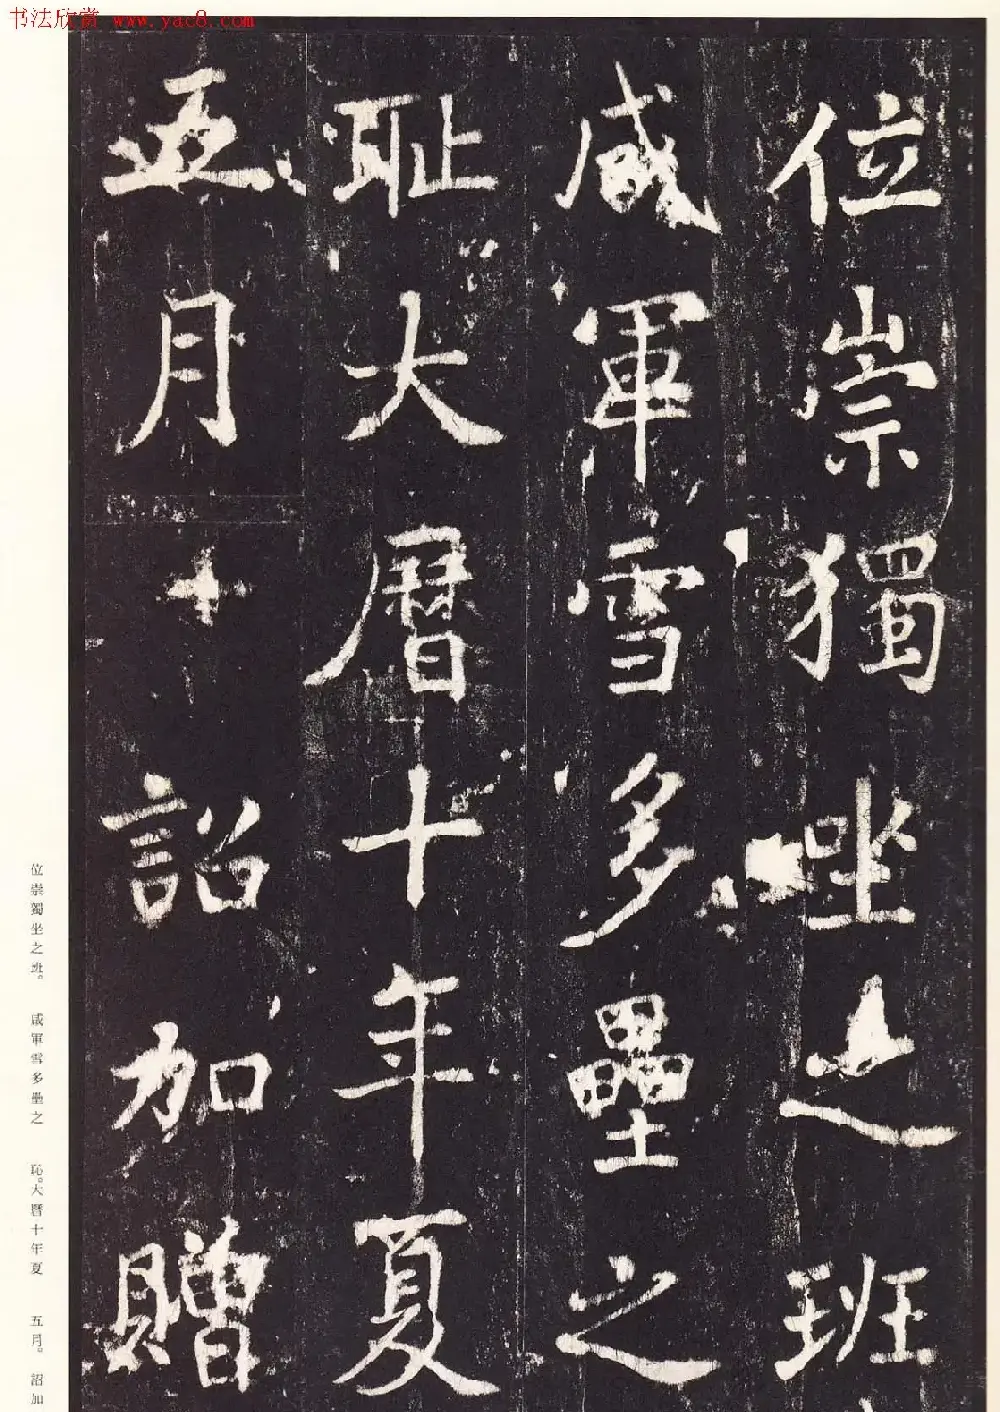 书法欣赏 www.yac8.com
位崇獨坐之班
威軍雪多壘之
耻大曆十年夏
五月十詔加贈
位崇獨坐之班。 威軍雪多壘之 恥。大曆十年夏 五月。 詔加